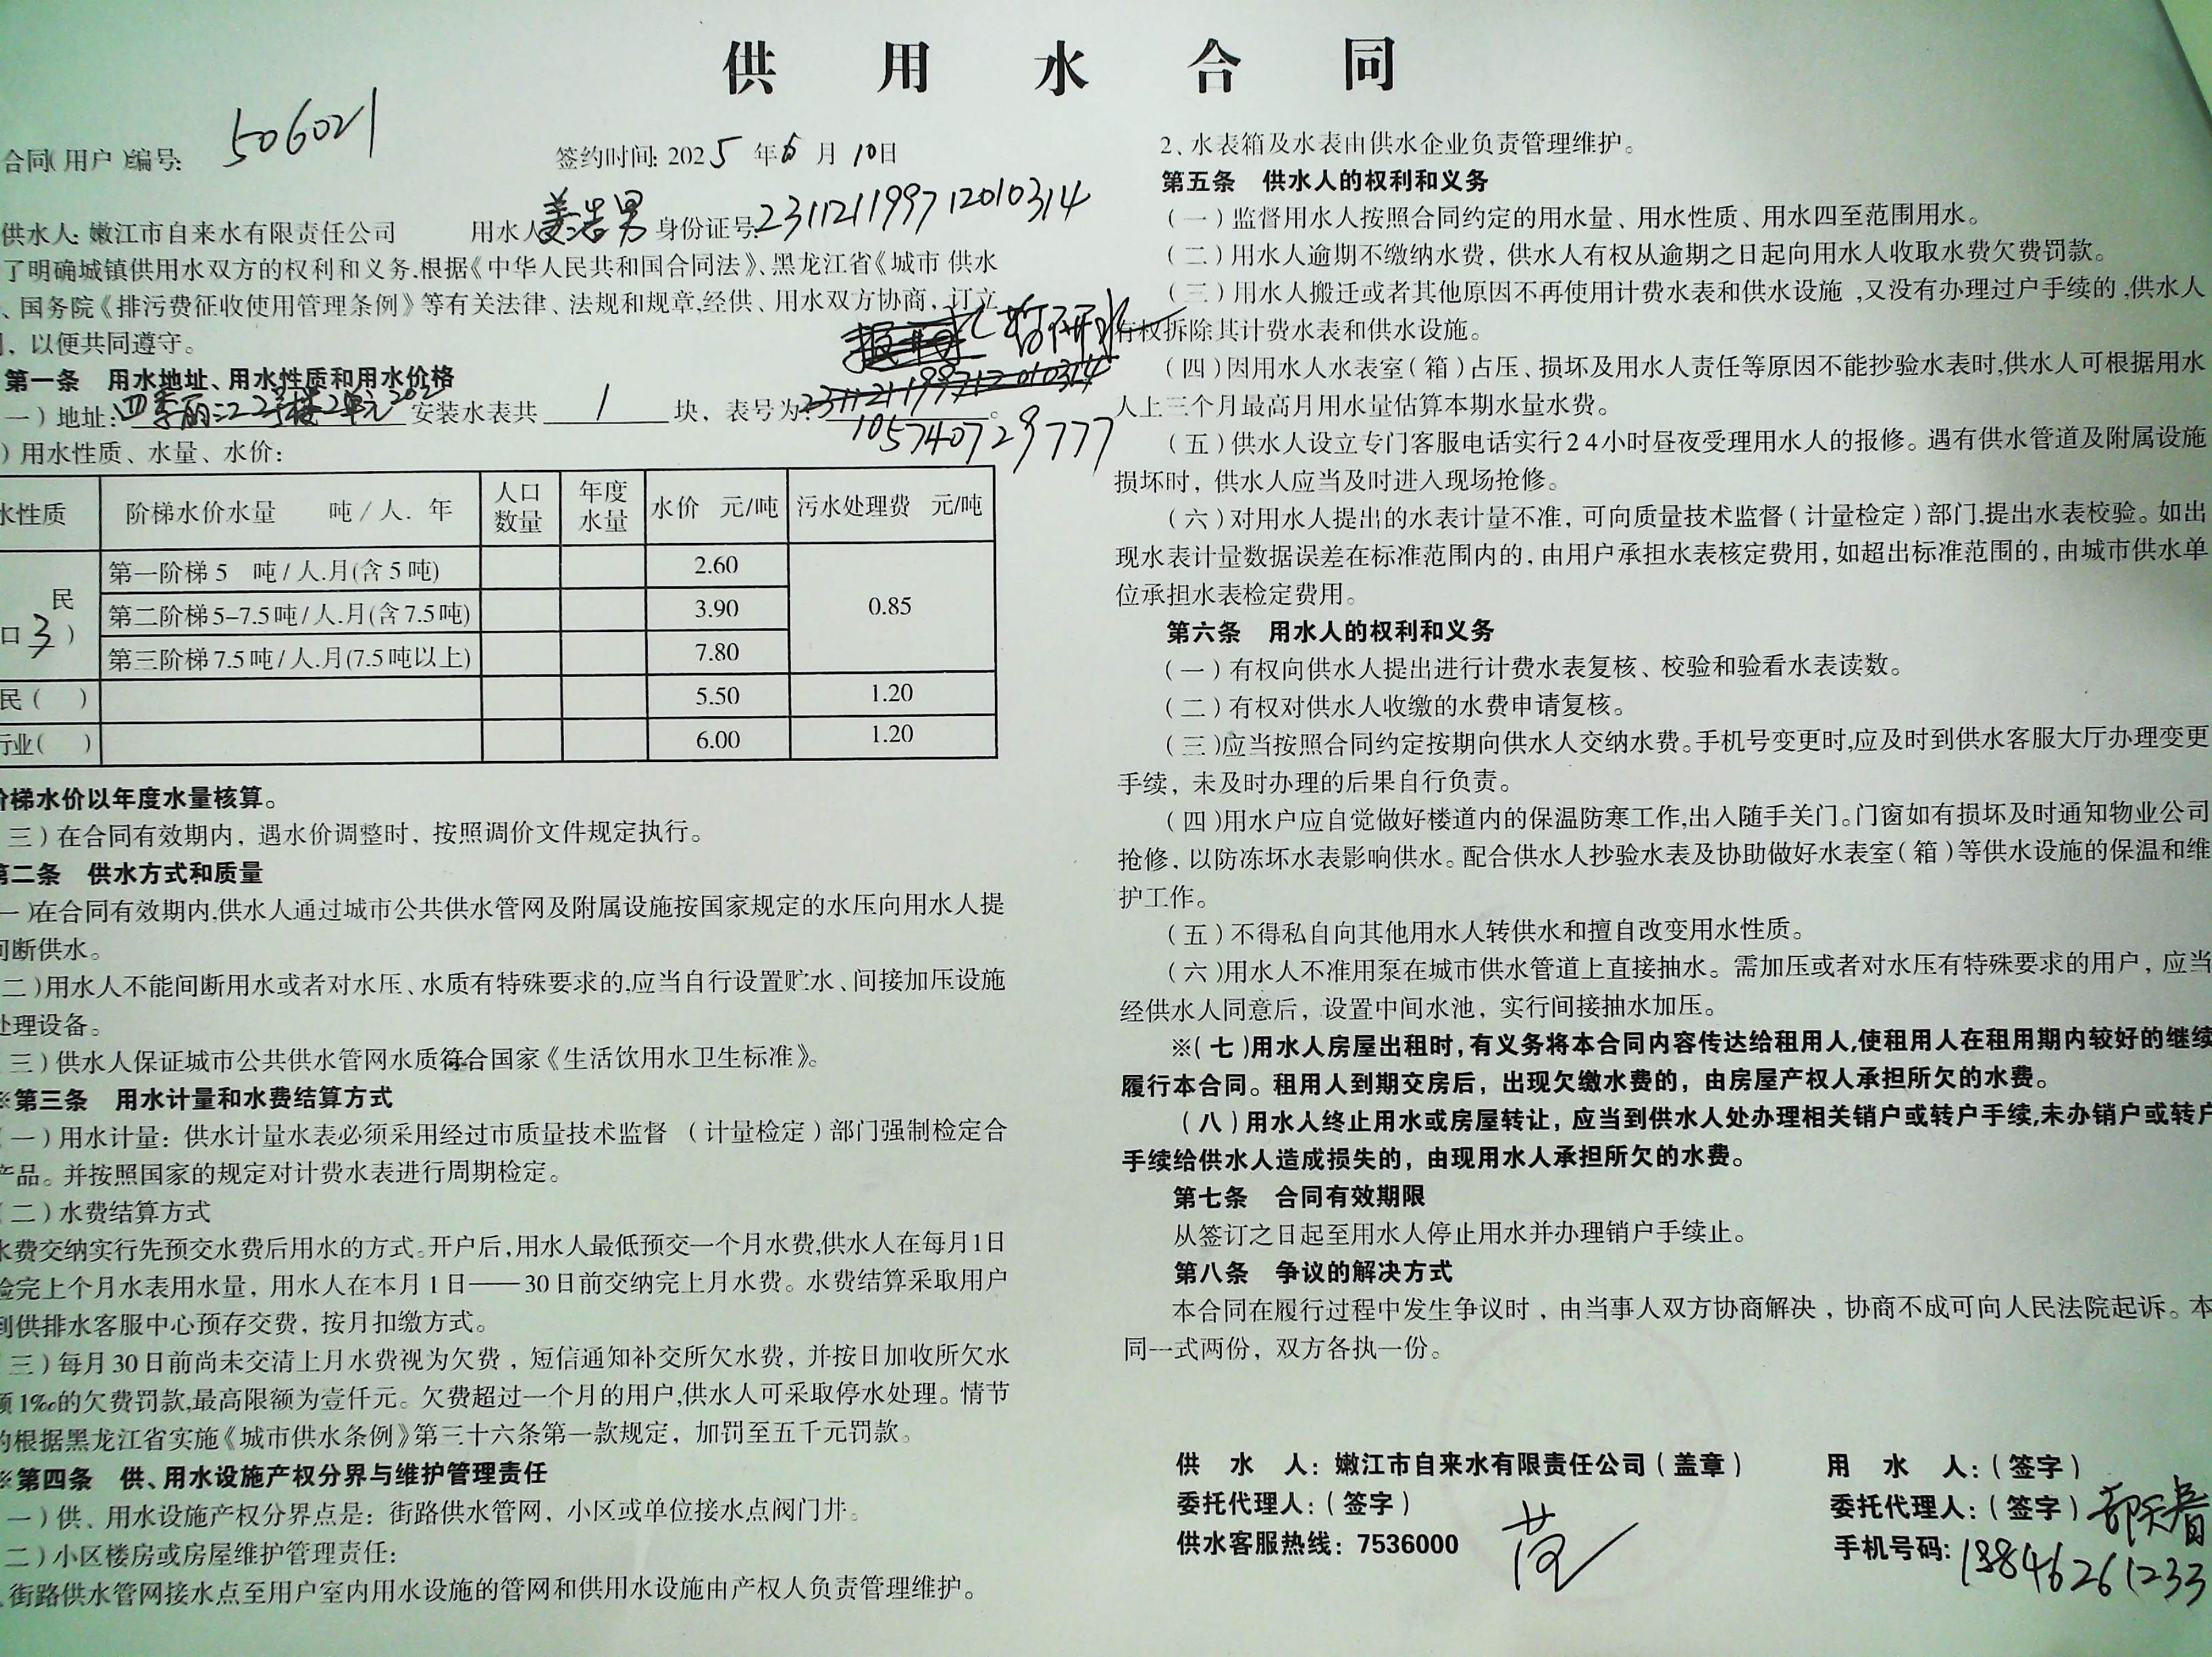 供 用 水 合 同
合同(用户)编号: 506021
签约时间: 2025 年 6 月 10日
供水人: 嫩江市自来水有限责任公司 用水人 姜浩男 身份证号: 231121199712010314
了明确城镇供用水双方的权利和义务,根据《中华人民共和国合同法》、黑龙江省《城市 供水
、国务院《排污费征收使用管理条例》等有关法律、法规和规章,经供、用水双方协商, 订立
, 以便共同遵守。
暂不开水
第一条 用水地址、用水性质和用水价格
一)地址: 四季丽江2号楼2单元202 安装水表共 1 块, 表号为: 231121199712010314 。
105740729777
)用水性质、水量、水价:
水性质 阶梯水价水量 吨/人. 年 人口数量 年度水量 水价 元/吨 污水处理费 元/吨
民
口 3 )
第一阶梯 5 吨/人.月(含 5 吨) 2.60 0.85
第二阶梯 5–7.5 吨/人.月(含 7.5 吨) 3.90
第三阶梯 7.5 吨/人.月(7.5 吨以上) 7.80
民( ) 5.50 1.20
行业( ) 6.00 1.20
阶梯水价以年度水量核算。
三)在合同有效期内, 遇水价调整时, 按照调价文件规定执行。
第二条 供水方式和质量
一)在合同有效期内,供水人通过城市公共供水管网及附属设施按国家规定的水压向用水人提
间断供水。
二)用水人不能间断用水或者对水压、水质有特殊要求的,应当自行设置贮水、间接加压设施
处理设备。
三)供水人保证城市公共供水管网水质符合国家《生活饮用水卫生标准》。
※第三条 用水计量和水费结算方式
(一)用水计量: 供水计量水表必须采用经过市质量技术监督 (计量检定)部门强制检定合
产品。并按照国家的规定对计费水表进行周期检定。
(二)水费结算方式
水费交纳实行先预交水费后用水的方式。开户后,用水人最低预交一个月水费,供水人在每月1日
验完上个月水表用水量, 用水人在本月 1 日——30 日前交纳完上月水费。水费结算采取用户
到供排水客服中心预存交费, 按月扣缴方式。
三)每月 30 日前尚未交清上月水费视为欠费, 短信通知补交所欠水费, 并按日加收所欠水
额 1‰的欠费罚款,最高限额为壹仟元。欠费超过一个月的用户,供水人可采取停水处理。情节
的根据黑龙江省实施《城市供水条例》第三十六条第一款规定, 加罚至五千元罚款。
※第四条 供、用水设施产权分界与维护管理责任
一)供、用水设施产权分界点是: 街路供水管网, 小区或单位接水点阀门井。
二)小区楼房或房屋维护管理责任:
、街路供水管网接水点至用户室内用水设施的管网和供用水设施由产权人负责管理维护。
2、水表箱及水表由供水企业负责管理维护。
第五条 供水人的权利和义务
(一)监督用水人按照合同约定的用水量、用水性质、用水四至范围用水。
(二)用水人逾期不缴纳水费, 供水人有权从逾期之日起向用水人收取水费欠费罚款。
(三)用水人搬迁或者其他原因不再使用计费水表和供水设施 ,又没有办理过户手续的 ,供水人
有权拆除其计费水表和供水设施。
(四)因用水人水表室(箱)占压、损坏及用水人责任等原因不能抄验水表时,供水人可根据用水
人上三个月最高月用水量估算本期水量水费。
(五)供水人设立专门客服电话实行24小时昼夜受理用水人的报修。遇有供水管道及附属设施
损坏时, 供水人应当及时进入现场抢修。
(六)对用水人提出的水表计量不准, 可向质量技术监督(计量检定)部门,提出水表校验。如出
现水表计量数据误差在标准范围内的, 由用户承担水表核定费用, 如超出标准范围的, 由城市供水单
位承担水表检定费用。
第六条 用水人的权利和义务
(一)有权向供水人提出进行计费水表复核、校验和验看水表读数。
(二)有权对供水人收缴的水费申请复核。
(三)应当按照合同约定按期向供水人交纳水费。手机号变更时,应及时到供水客服大厅办理变更
手续, 未及时办理的后果自行负责。
(四)用水户应自觉做好楼道内的保温防寒工作,出入随手关门。门窗如有损坏及时通知物业公司
抢修, 以防冻坏水表影响供水。配合供水人抄验水表及协助做好水表室(箱)等供水设施的保温和维
护工作。
(五)不得私自向其他用水人转供水和擅自改变用水性质。
(六)用水人不准用泵在城市供水管道上直接抽水。需加压或者对水压有特殊要求的用户, 应当
经供水人同意后, 设置中间水池, 实行间接抽水加压。
※(七)用水人房屋出租时, 有义务将本合同内容传达给租用人,使租用人在租用期内较好的继续
履行本合同。租用人到期交房后, 出现欠缴水费的, 由房屋产权人承担所欠的水费。
(八)用水人终止用水或房屋转让, 应当到供水人处办理相关销户或转户手续,未办销户或转户
手续给供水人造成损失的, 由现用水人承担所欠的水费。
第七条 合同有效期限
从签订之日起至用水人停止用水并办理销户手续止。
第八条 争议的解决方式
本合同在履行过程中发生争议时, 由当事人双方协商解决, 协商不成可向人民法院起诉。本
同一式两份, 双方各执一份。
供 水 人: 嫩江市自来水有限责任公司(盖章) 用 水 人: (签字)
委托代理人: (签字) 委托代理人: (签字)
供水客服热线: 7536000 手机号码: 13846261233